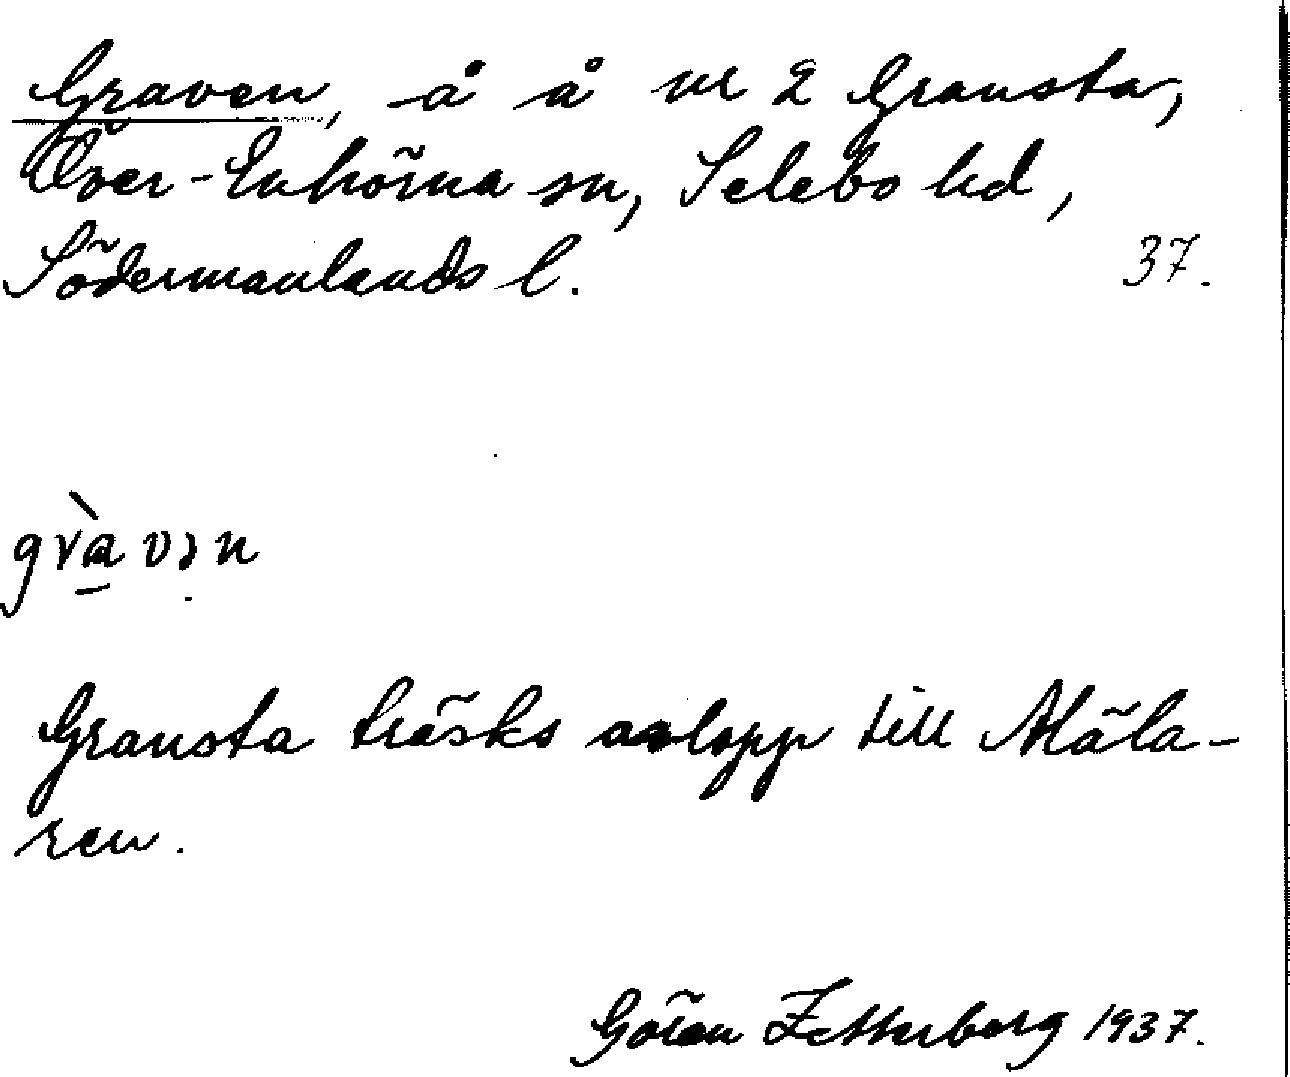 Graven, å å nr 2 Gransta,
Över-Enhörna sn, Selebo hd,
Södermanlands l. 37.
gràvən
Gransta träsks avlopp till Mäla-
ren.
Göran Zetterberg 1937.